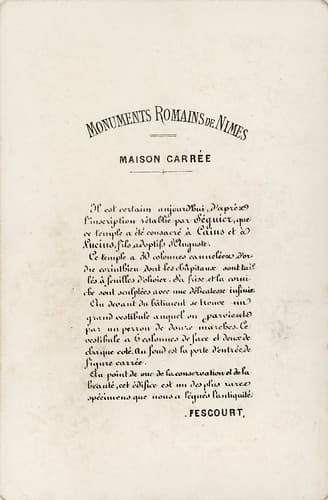 MONUMENTS ROMAINS DE NIMES
MAISON CARRÉE
Il est certain aujourd'hui, d'après
l'inscription rétablie par Séguier, que
ce temple a été consacré à Caïus et à
Lucius, fils adoptifs d'Auguste.
Ce temple a 30 colonnes cannelées d'or-
dre corinthien dont les châpitaux sont tail-
lés à feuilles d'olivier. La frise et la corni-
che sont sculptées avec une délicatesse infinie.
Au devant du bâtiment se trouve un
grand vestibule auquel on parvient
par un perron de douze marches. Le
vestibule a 6 colonnes de face et deux de
chaque coté. Au fond est la porte d'entrée de
figure carrée.
Au point de vue de la conservation et de la
beauté, cet édifice est un des plus rares
spécimens que nous a légués l'antiquité.
FESCOURT,